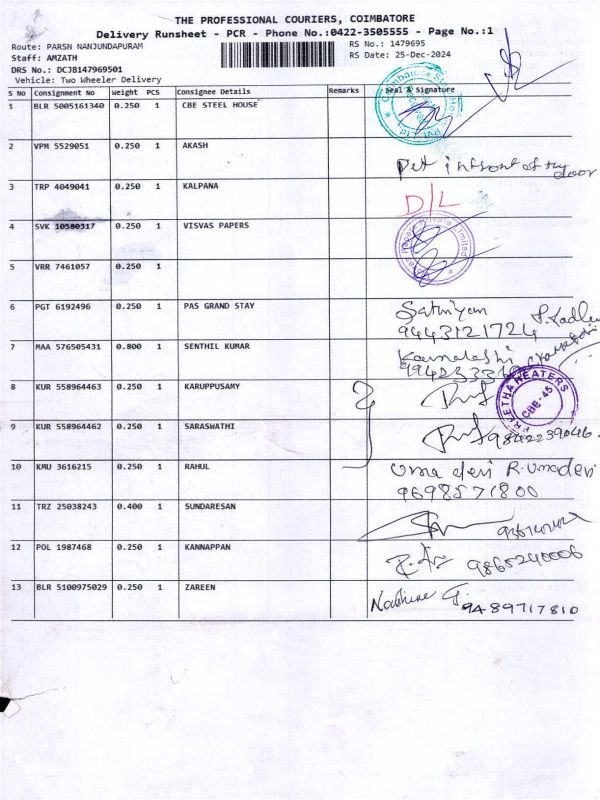 THE PROFESSIONAL COURIERS, COIMBATORE
Delivery Runsheet - PCR - Phone No.:0422-3505555 - Page No.:1
Route: PARSN NANJUNDAPURAM
RS No.: 1479695
Staff: AMZATH
RS Date: 25-Dec-2024
DRS No.: DCJB147969501
Vehicle: Two Wheeler Delivery
S No Consignment No Weight PCS Consignee Details Remarks Seal & Signature
1 BLR 5005161340 0.250 1 CBE STEEL HOUSE
2 VPM 5529051 0.250 1 AKASH
Put infront of the door
3 TRP 4049041 0.250 1 KALPANA D/L
4 SVK 10580317 0.250 1 VISVAS PAPERS
5 VRR 7461057 0.250 1
6 PGT 6192496 0.250 1 PAS GRAND STAY Sathiyam
9443121724
7 MAA 576505431 0.800 1 SENTHIL KUMAR Kamalashi
8 KUR 558964463 0.250 1 KARUPPUSAMY
PREETHA HEATERS CBE-45
9 KUR 558964462 0.250 1 SARASWATHI 9842239046
10 KMU 3616215 0.250 1 RAHUL Uma devi R. Umadevi
9698571800
11 TRZ 25038243 0.400 1 SUNDARESAN
12 POL 1987468 0.250 1 KANNAPPAN 9865240006
13 BLR 5100975029 0.250 1 ZAREEN G. 9489717810